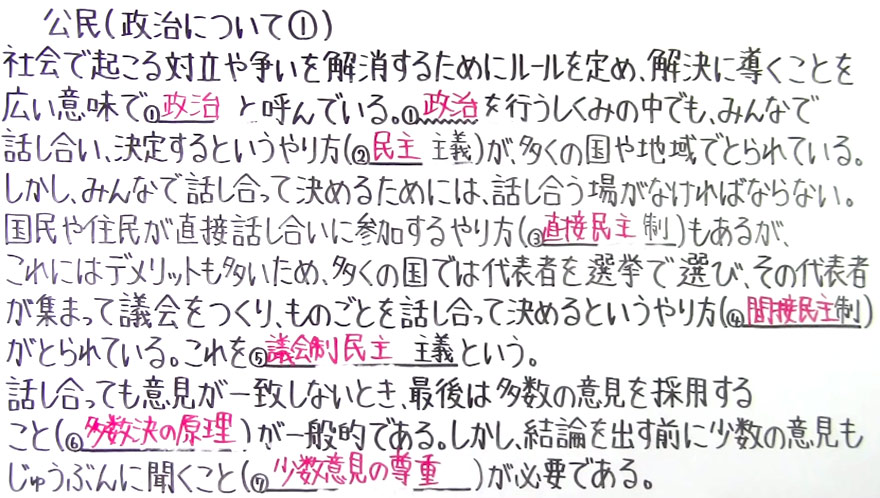 公民(政治について①)
社会で起こる対立や争いを解消するためにルールを定め、解決に導くことを
広い意味で①政治 と呼んでいる。①政治を行うしくみの中でも、みんなで
話し合い、決定するというやり方(②民主 主義)が、多くの国や地域でとられている。
しかし、みんなで話し合って決めるためには、話し合う場がなければならない。
国民や住民が直接話し合いに参加するやり方(③直接民主 制)もあるが、
これにはデメリットも多いため、多くの国では代表者を選挙で選び、その代表者
が集まって議会をつくり、ものごとを話し合って決めるというやり方(④間接民主制)
がとられている。これを⑤議会制民主 主義という。
話し合っても意見が一致しないとき、最後は多数の意見を採用する
こと(⑥多数決の原理)が一般的である。しかし、結論を出す前に少数の意見も
じゅうぶんに聞くこと(⑦少数意見の尊重 )が必要である。